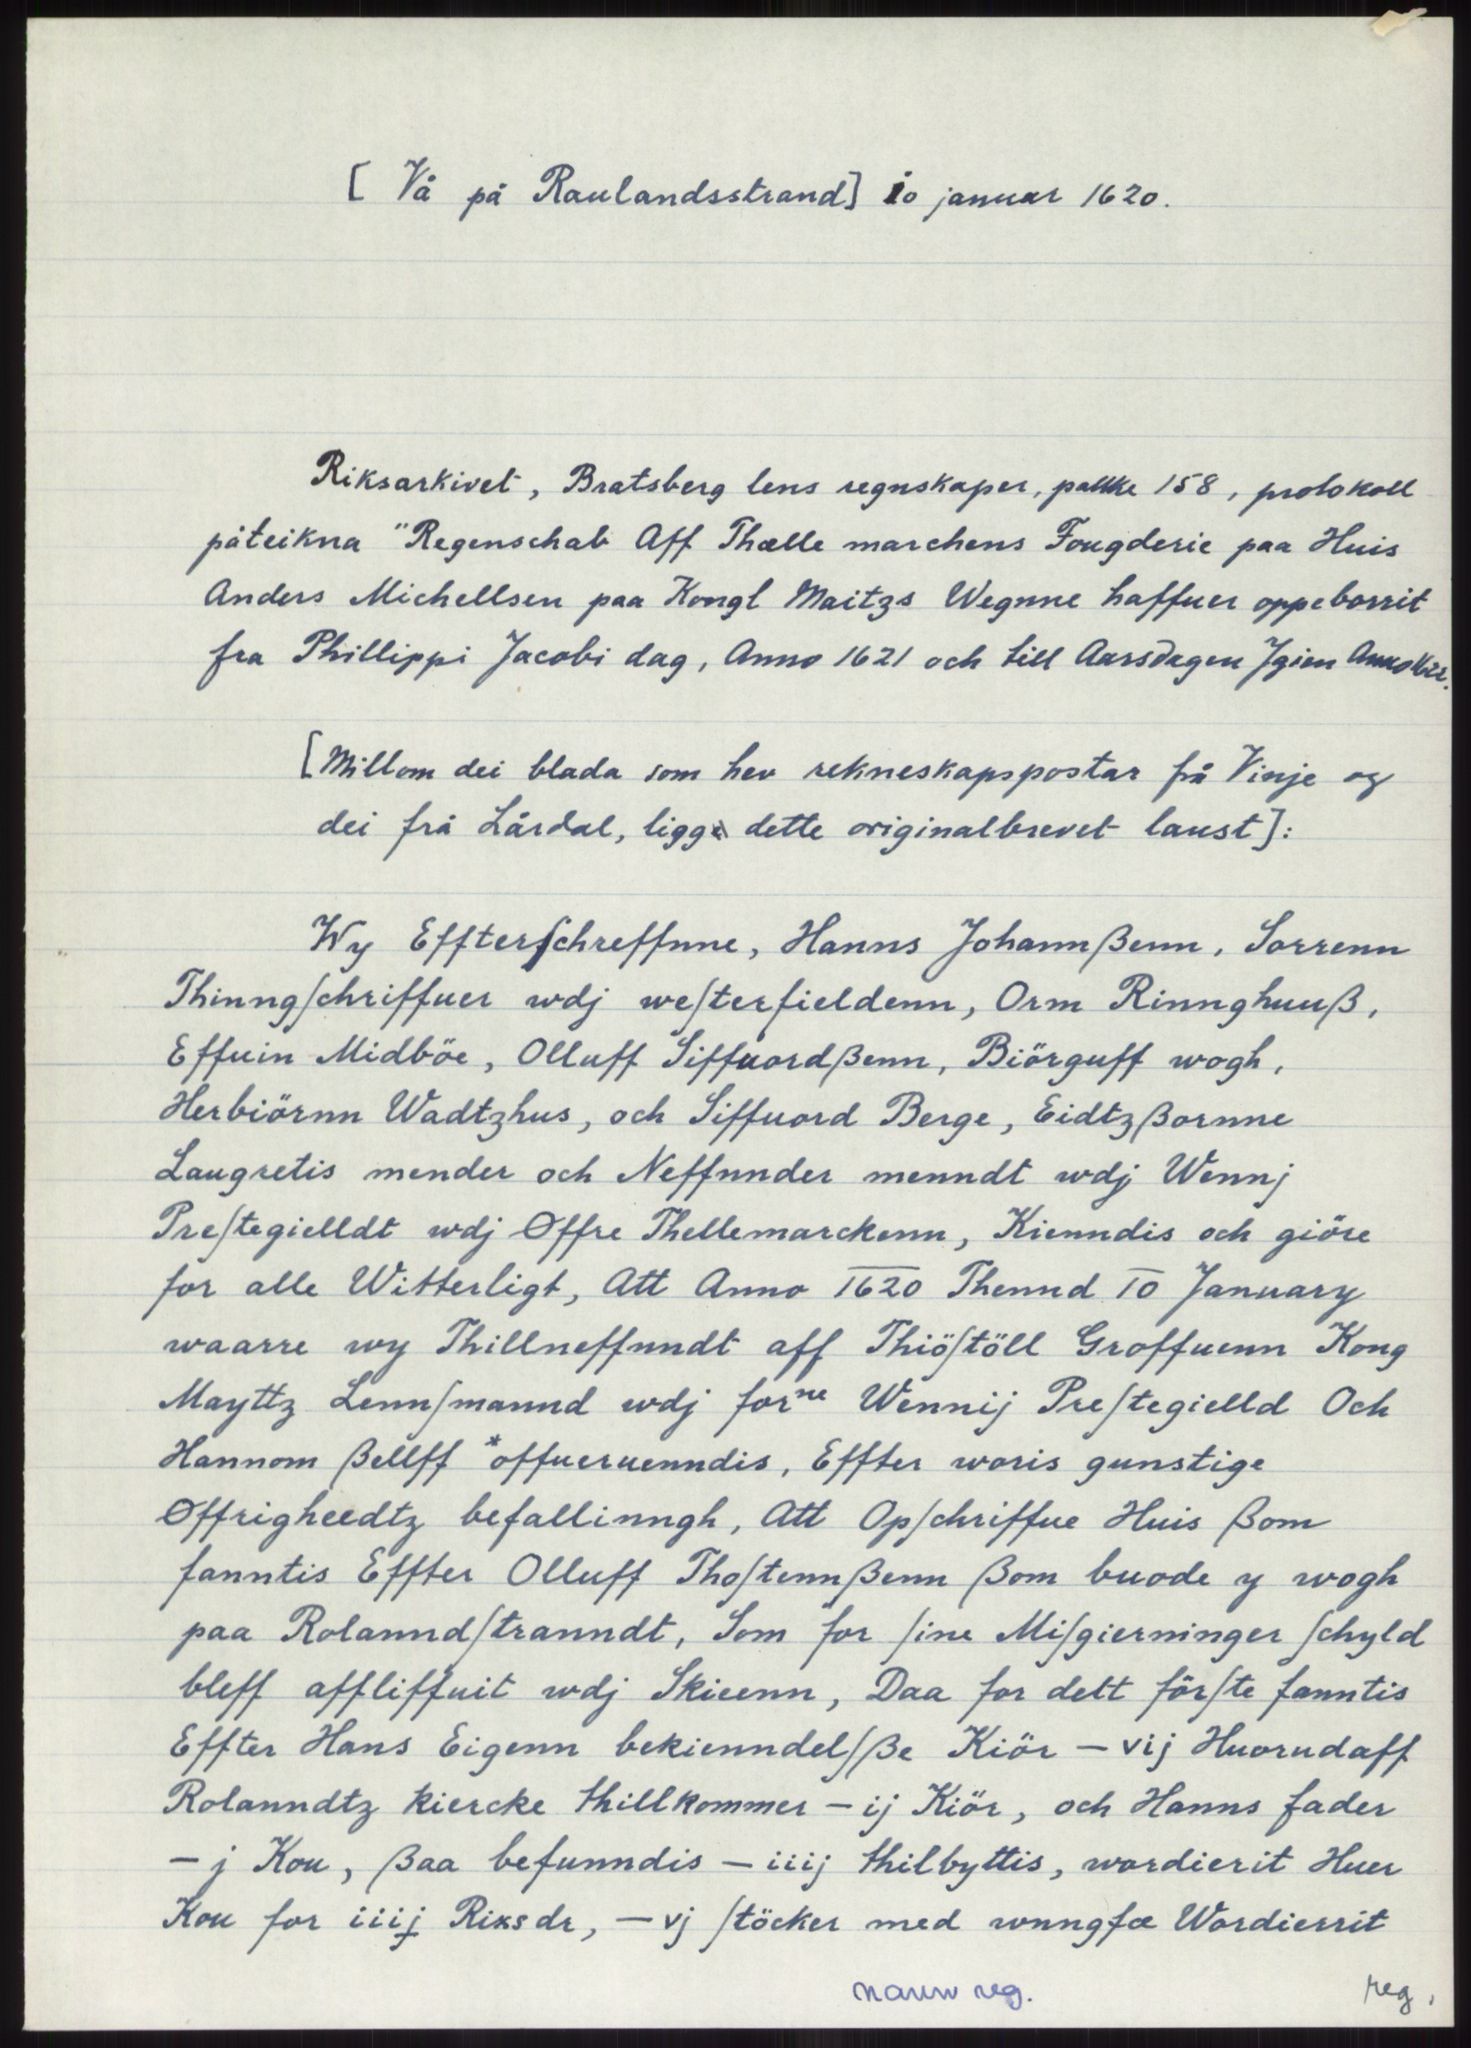 [ Vå på Raulandsstrand] 10 januar 1620.
Riksarkivet, Bratsberg lens regnskaper, pakke 158, protokoll
påteikna "Regenschab Aff Thælle marchens Fougderie paa Huis
Anders Michellsen paa Kongl Maitzs Wegnne haffuer oppeborrit
fra Phillippi Jacobi dag, Anno 1621 och till Aarsdagen Jgien Anno
[Millom dei blada som hev rekneskapspostar frå Vinje og
dei frå Lårdal, ligg dette originalbrevet laust]:
Wy Effterſchreffnne, Hanns Johannßenn, Sorrenn
Thinngſchriffuer wdj weſterfieldenn, Orm Rinnghuuß,
Effuin Midböe, Olluff Siffuordßenn, Biörguff wogh,
Herbiörnn Wadtzhus, och Siffuord Berge, Eidtzßornne
Laugretis mender och Neffnnder menndt wdj Wennj
Preſtegielldt wdj Øffre Thellemarckenn, Kienndis och giöre
for alle Witterligt, Att Anno 1620 Thennd 10 January
waarre wy Thillneffnndt aff Thiöſtöll Groffuenn Kong
Mayttz Lennſmannd wdj forne Wennij Preſtegielld Och
Hannom ßellff *offueruenndis, Effter woris gunstige
Øffrigheedtz befallinngh, Att Opſchriffue Huis ßom
fanntis Effter Olluff Thoſtennßenn ßom buode y wogh
paa Rolanndſtranndt, Som for ſine Miſgierninger ſchyld
bleff affliffuit wdj Skieenn, Daa for dett förſte fanntis
Effter Hans Eigenn bekienndelſße Kiör - vij Huorudaff
Rolanndtz kiercke thillkommer - ij Kiör, och Hanns fader
- j Kou, ßaa befunndis - iiij thilbyttis, wordierit Huer
Kou for iiij Rixsdr, - vj ſtöcker med wnngfæ Wordierrit
navn reg.
reg.